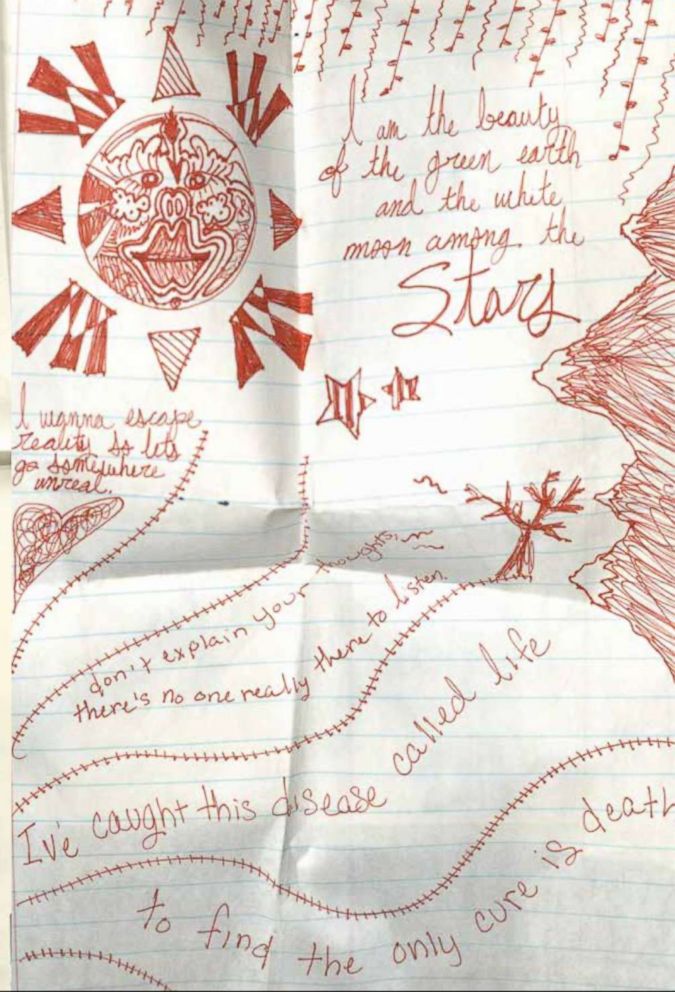 I am the beauty
of the green earth
and the white
moon among the
Stars
I wanna escape
reality so lets
go somewhere
unreal.
don't explain your thoughts,
there's no one really there to listen.
I've caught this disease called life
to find the only cure is death